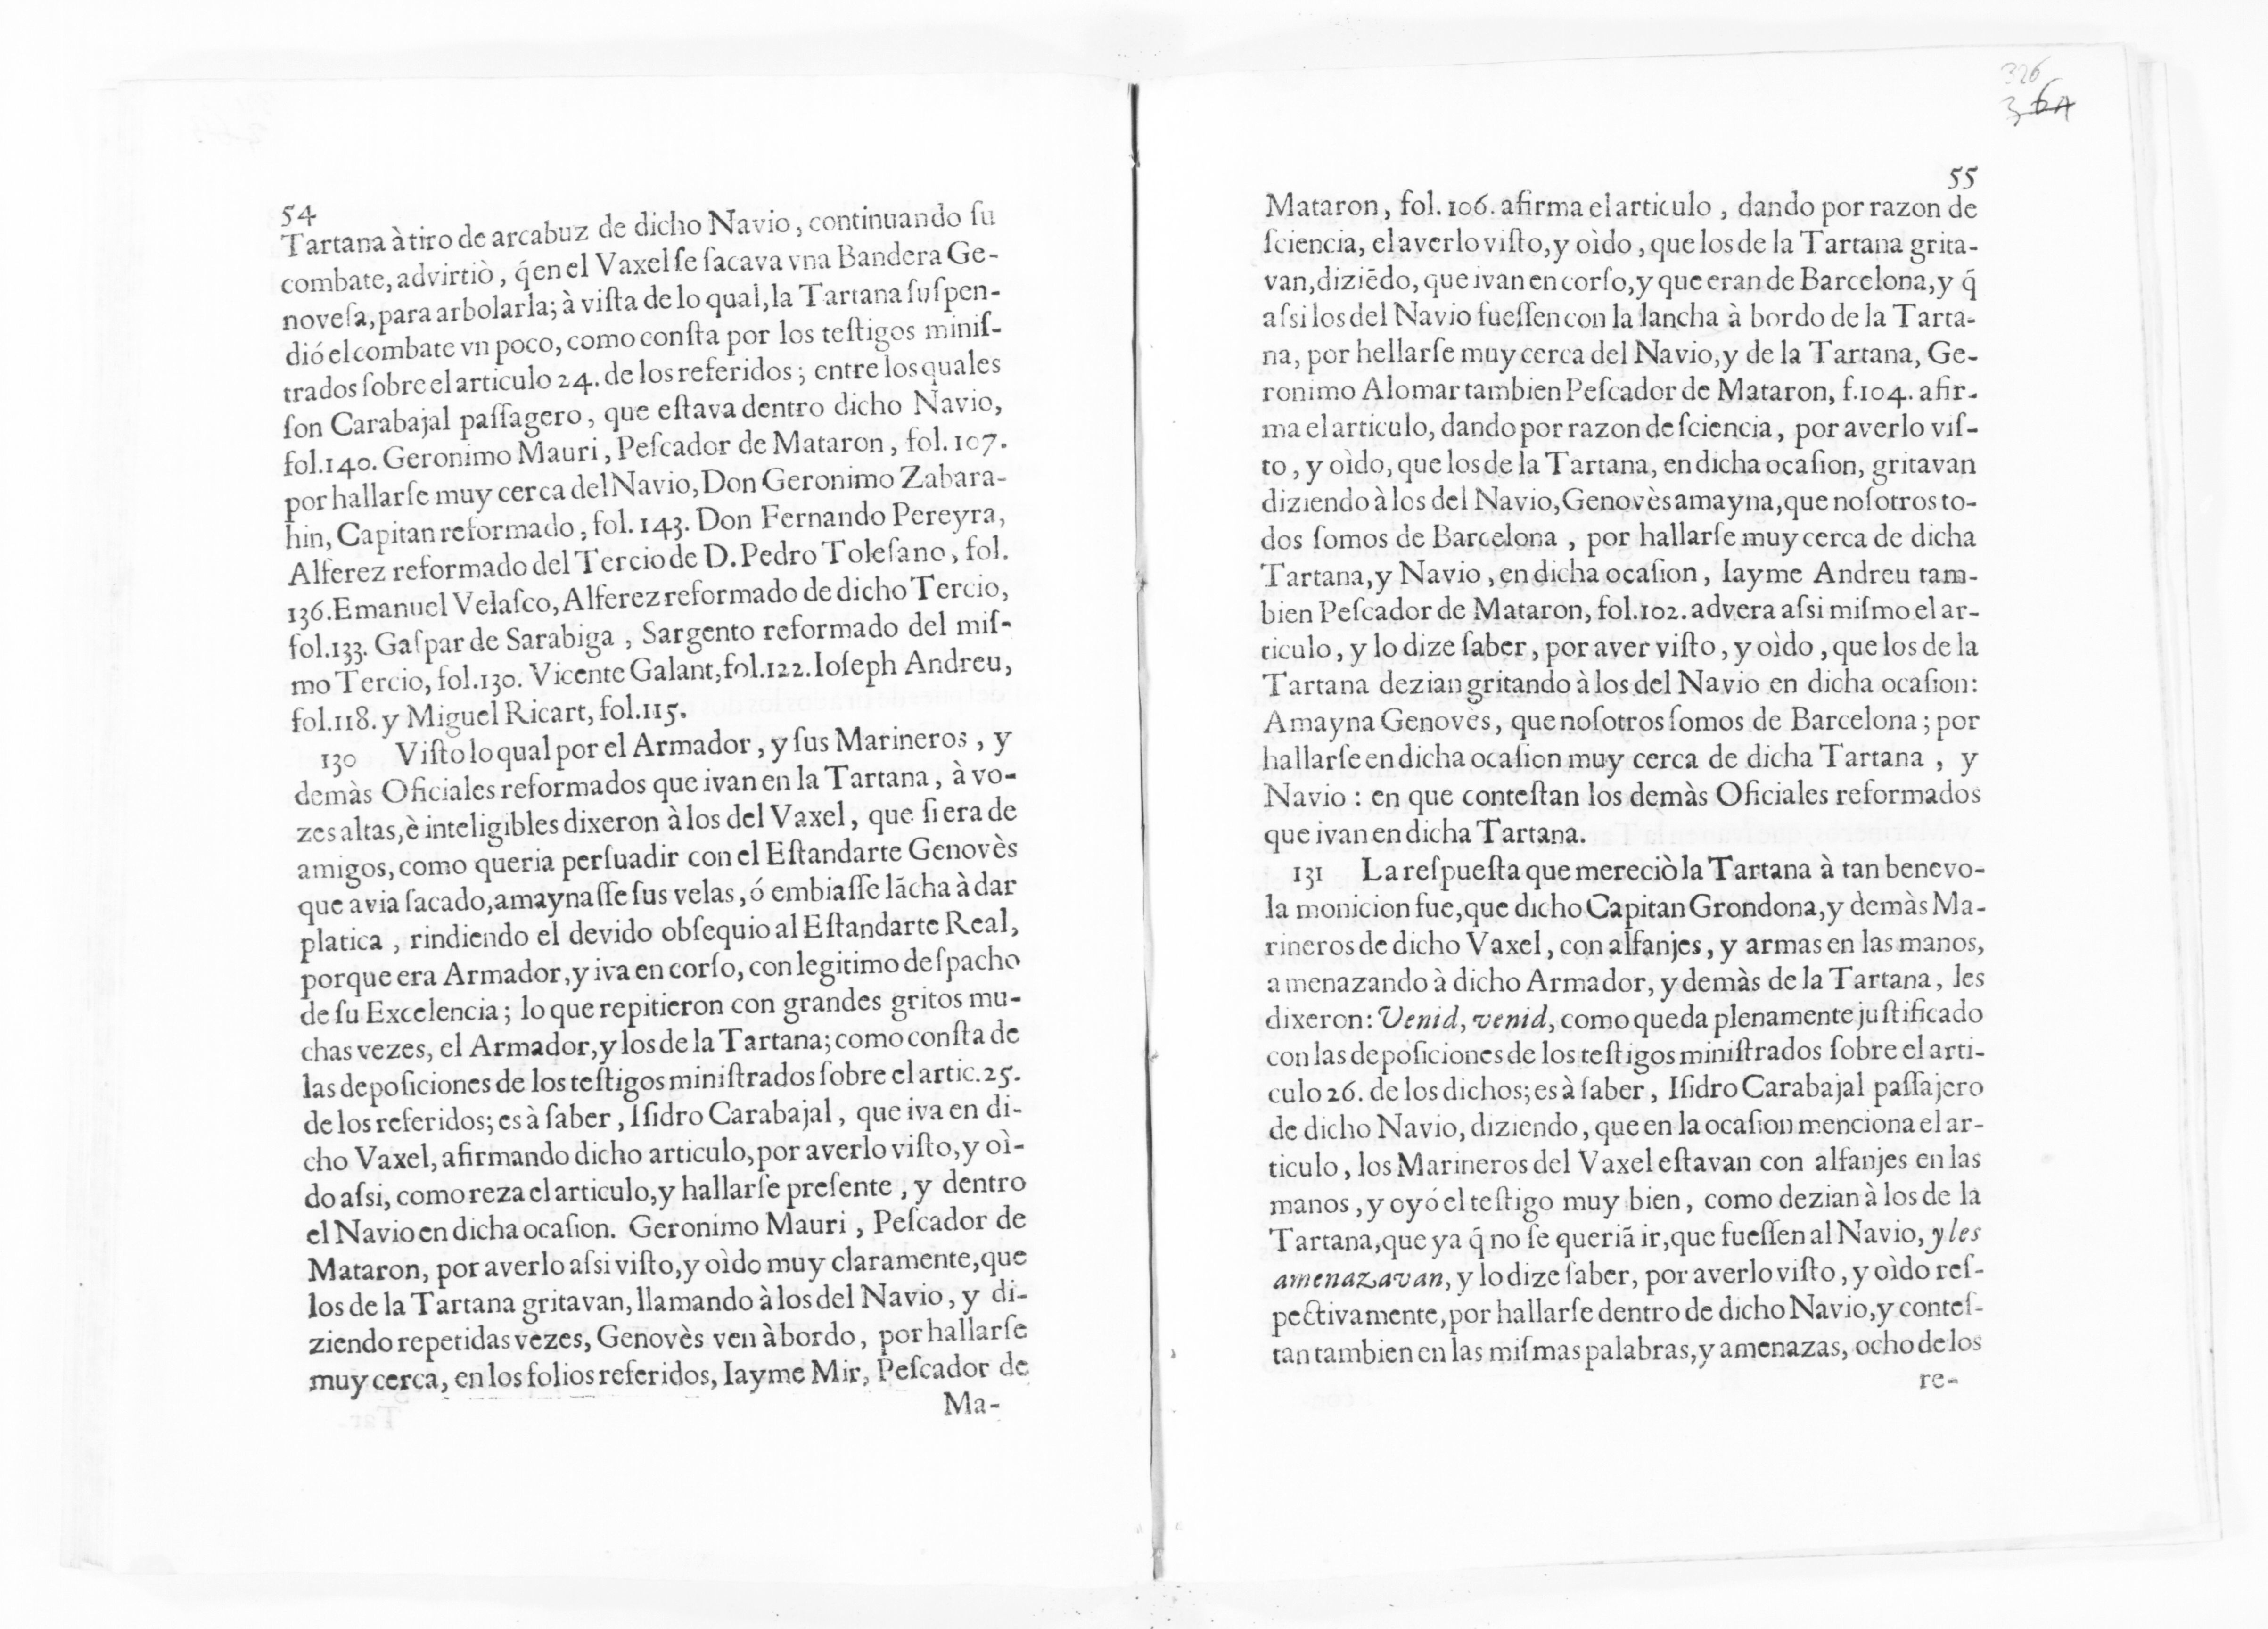 54
Tartana à tiro de arcabuz de dicho Navio, continuando ſu
combate, advirtiò, q̃ en el Vaxel ſe ſacava vna Bandera Ge-
noveſa, para arbolarla; à viſta de lo qual, la Tartana ſuſpen-
dió el combate vn poco, como conſta por los teſtigos miniſ-
trados ſobre el articulo 24. de los referidos; entre los quales
ſon Carabajal paſſagero, que eſtava dentro dicho Navio,
fol.140. Geronimo Mauri, Peſcador de Mataron, fol. 107.
por hallarſe muy cerca del Navio, Don Geronimo Zabara-
hin, Capitan reformado, fol. 143. Don Fernando Pereyra,
Alferez reformado del Tercio de D. Pedro Toleſano, fol.
136. Emanuel Velaſco, Alferez reformado de dicho Tercio,
fol.133. Gaſpar de Sarabiga, Sargento reformado del miſ-
mo Tercio, fol.130. Vicente Galant, fol.122. Ioſeph Andreu,
fol.118. y Miguel Ricart, fol.115.
130 Viſto lo qual por el Armador, y ſus Marineros, y
demàs Oficiales reformados que ivan en la Tartana, à vo-
zes altas, è inteligibles dixeron à los del Vaxel, que ſi era de
amigos, como queria perſuadir con el Eſtandarte Genovès
que avia ſacado, amaynaſſe ſus velas, ó embiaſſe lãcha à dar
platica, rindiendo el devido obſequio al Eſtandarte Real,
porque era Armador, y iva en corſo, con legitimo deſpacho
de ſu Excelencia; lo que repitieron con grandes gritos mu-
chas vezes, el Armador, y los de la Tartana; como conſta de
las depoſiciones de los teſtigos miniſtrados ſobre el artic. 25.
de los referidos; es à ſaber, Iſidro Carabajal, que iva en di-
cho Vaxel, afirmando dicho articulo, por averlo viſto, y oì-
do aſsi, como reza el articulo, y hallarſe preſente, y dentro
el Navio en dicha ocaſion. Geronimo Mauri, Peſcador de
Mataron, por averlo aſsi viſto, y oìdo muy claramente, que
los de la Tartana gritavan, llamando à los del Navio, y di-
ziendo repetidas vezes, Genovès ven à bordo, por hallarſe
muy cerca, en los folios referidos, Iayme Mir, Peſcador de
Ma-
326
55
Mataron, fol. 106. afirma el articulo, dando por razon de
ſciencia, el averlo viſto, y oìdo, que los de la Tartana grita-
van, diziẽdo, que ivan en corſo, y que eran de Barcelona, y q̃
aſsi los del Navio fueſſen con la lancha à bordo de la Tarta-
na, por hellarſe muy cerca del Navio, y de la Tartana, Ge-
ronimo Alomar tambien Peſcador de Mataron, f.104. afir-
ma el articulo, dando por razon de ſciencia, por averlo viſ-
to, y oìdo, que los de la Tartana, en dicha ocaſion, gritavan
diziendo à los del Navio, Genovès amayna, que noſotros to-
dos ſomos de Barcelona, por hallarſe muy cerca de dicha
Tartana, y Navio, en dicha ocaſion, Iayme Andreu tam-
bien Peſcador de Mataron, fol.102. advera aſsi miſmo el ar-
ticulo, y lo dize ſaber, por aver viſto, y oìdo, que los de la
Tartana dezian gritando à los del Navio en dicha ocaſion:
Amayna Genovès, que noſotros ſomos de Barcelona; por
hallarſe en dicha ocaſion muy cerca de dicha Tartana, y
Navio: en que conteſtan los demàs Oficiales reformados
que ivan en dicha Tartana.
131 La reſpueſta que mereciò la Tartana à tan benevo-
la monicion fue, que dicho Capitan Grondona, y demàs Ma-
rineros de dicho Vaxel, con alfanjes, y armas en las manos,
amenazando à dicho Armador, y demàs de la Tartana, les
dixeron: Venid, venid, como queda plenamente juſtificado
con las depoſiciones de los teſtigos miniſtrados ſobre el arti-
culo 26. de los dichos; es à ſaber, Iſidro Carabajal paſſajero
de dicho Navio, diziendo, que en la ocaſion menciona el ar-
ticulo, los Marineros del Vaxel eſtavan con alfanjes en las
manos, y oyó el teſtigo muy bien, como dezian à los de la
Tartana, que ya q̃ no ſe queriã ir, que fueſſen al Navio, y les
amenazavan, y lo dize ſaber, por averlo viſto, y oìdo reſ-
pectivamente, por hallarſe dentro de dicho Navio, y conteſ-
tan tambien en las miſmas palabras, y amenazas, ocho de los
re-